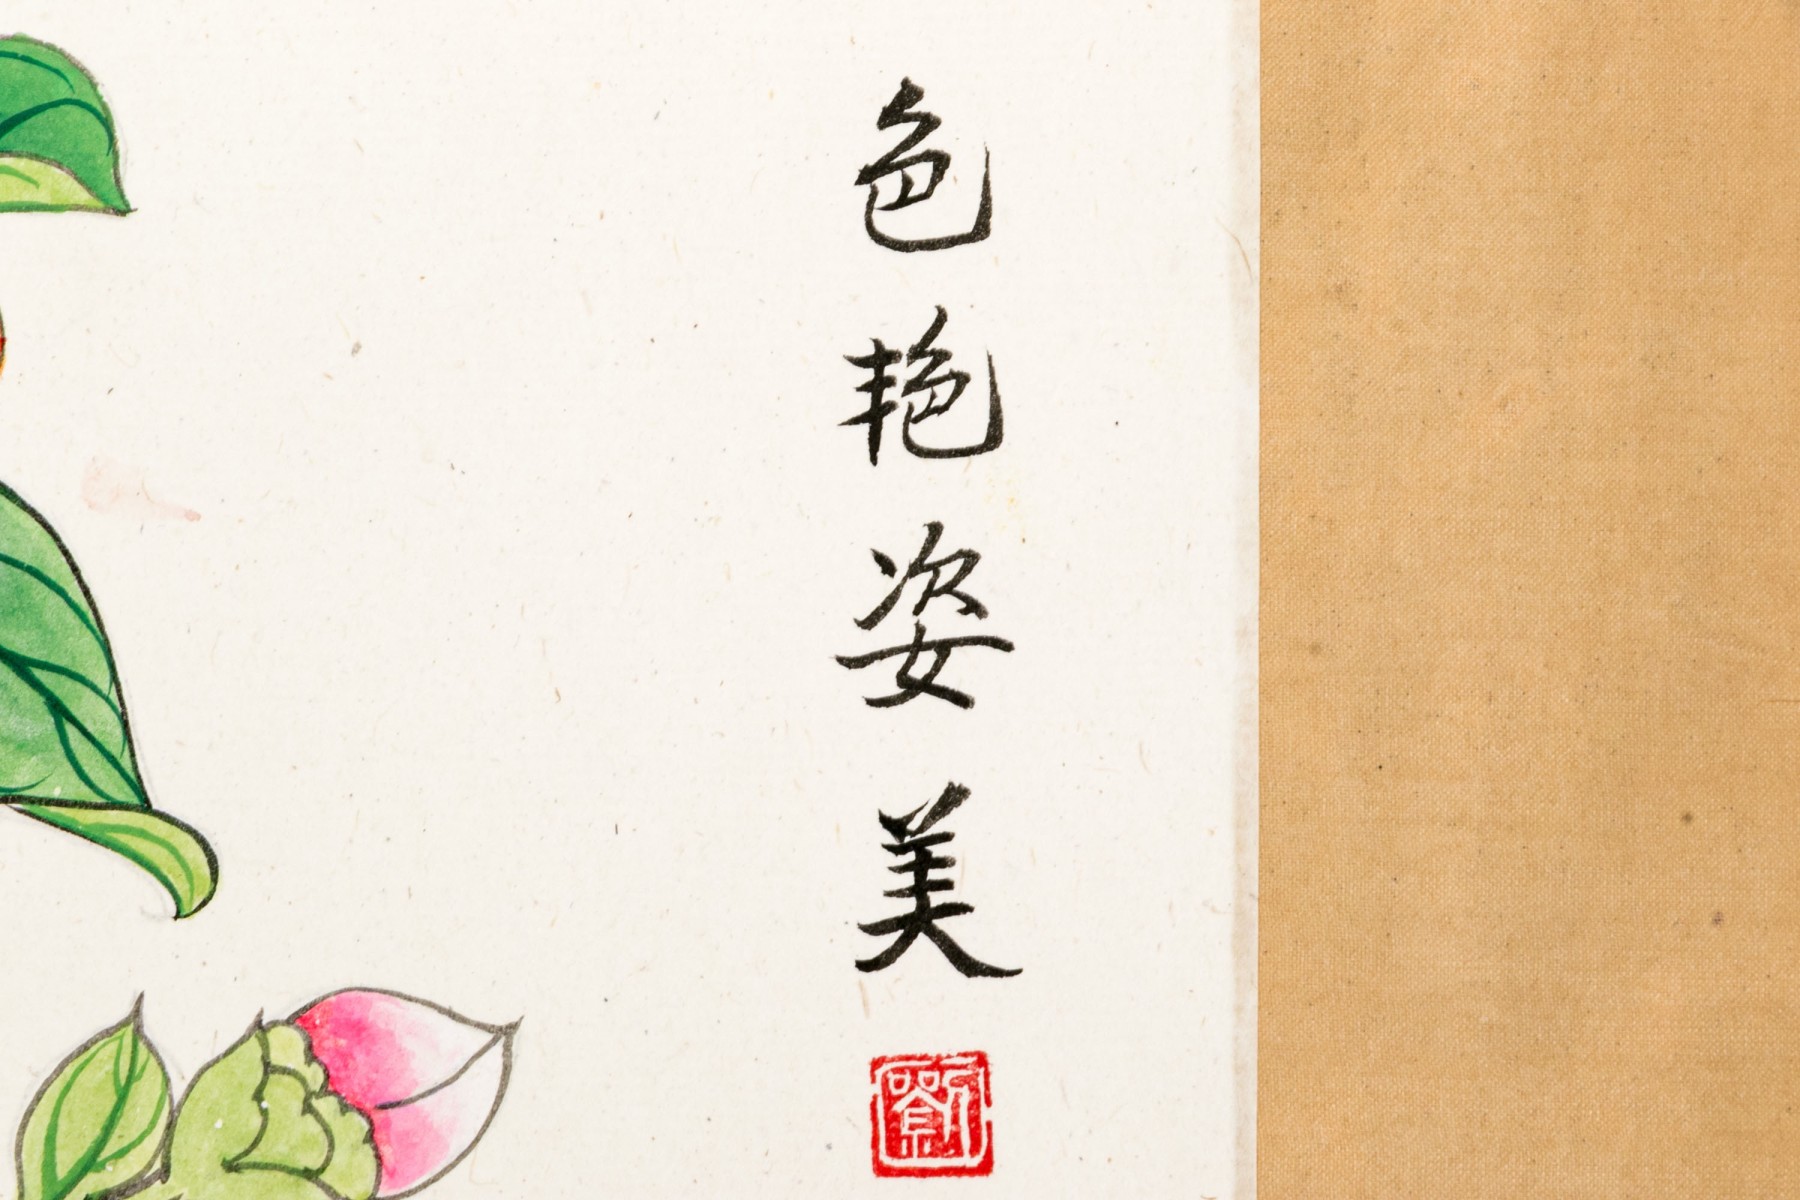 色艳姿美